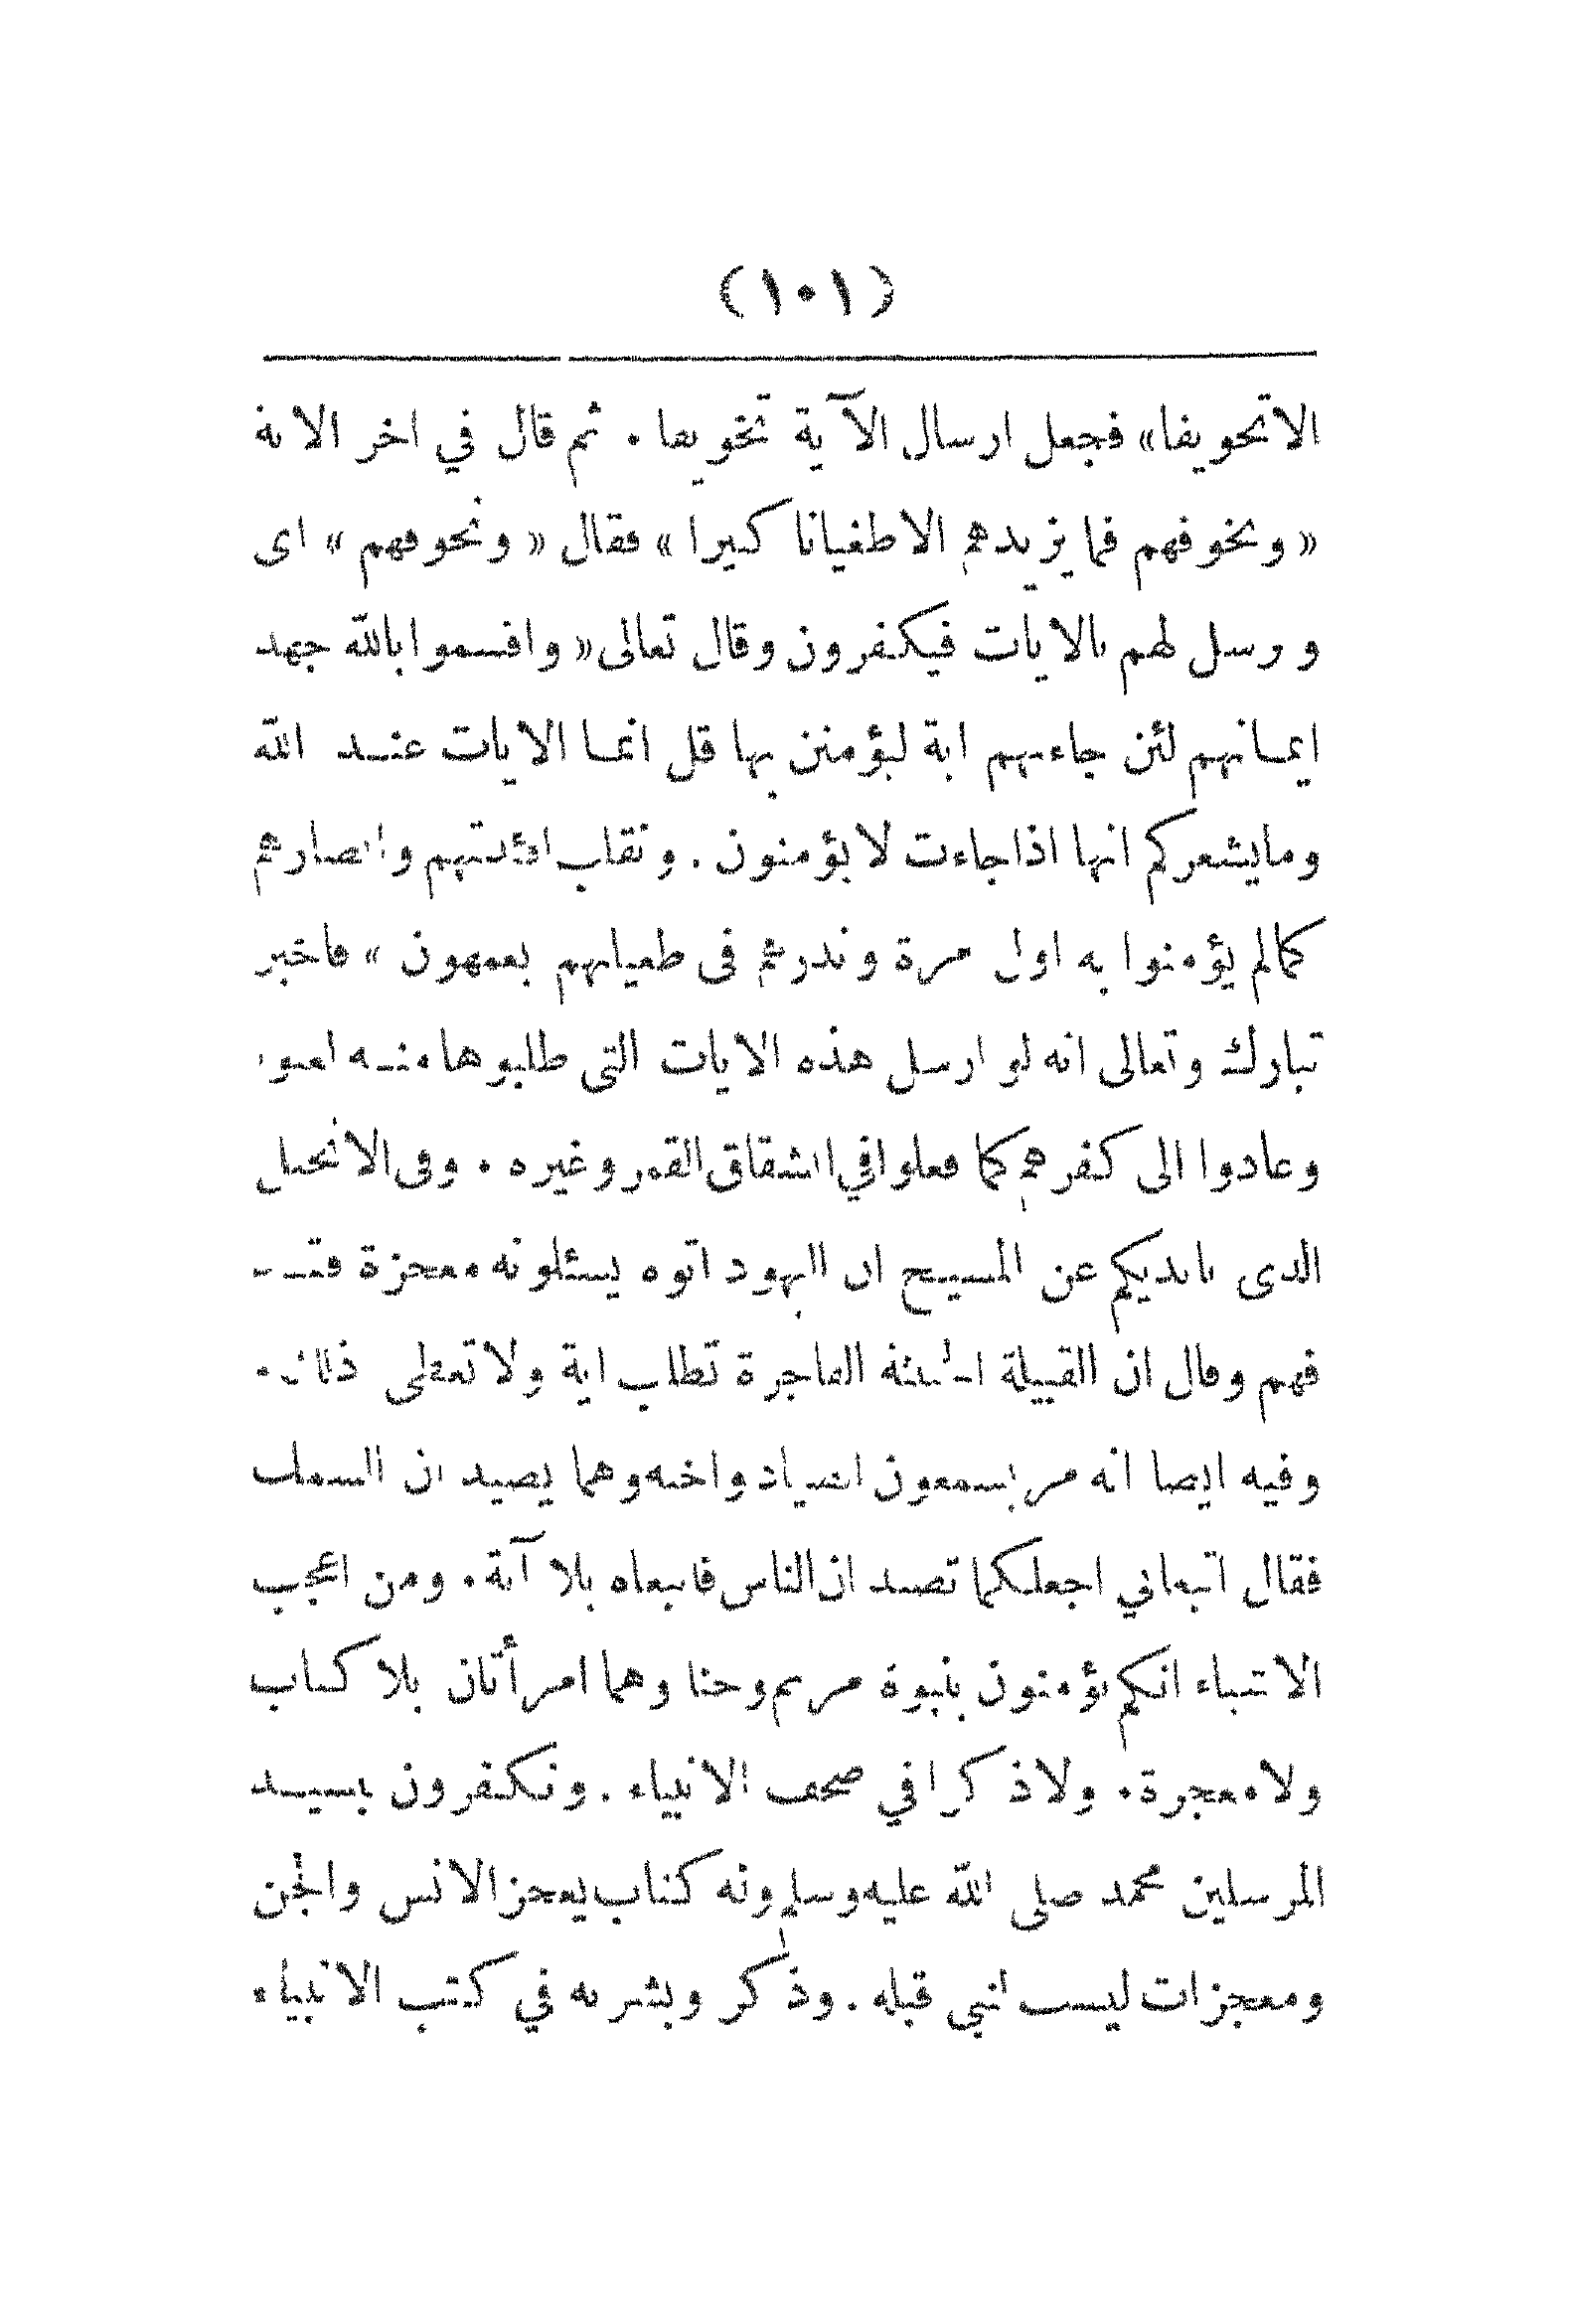 (١٠١)
الاتخويفا» فجعل ارسال الآية تخويفا . ثم قال في اخر الاية
« ونخوفهم فما يزيدهم الاطغيانا كبيرا » فقال « ونخوفهم » اى
و رسل لهم بالايات فيكفرون وقال تعالى « واقسموا بالله جهد
ايمانهم لئن جاءتهم اية ليؤمنن بها قل انما الايات عند الله
ومايشعركم انها اذا جاءت لايؤمنون . ونقلب افئدتهم وابصارهم
كمالم يؤمنوا به اول مرة ونذرهم فى طغيانهم يعمهون » فاخبر
تبارك وتعالى انه لو ارسل هذه الايات التى طلبوها منه
وعادوا الى كفرهم كما فعلوا في انشقاق القمر وغيره . وفى الانجيل
الذى بايديكم عن المسيح ان اليهود اتوه يسئلونه معجزة
فهم وقال ان القبيلة الخبيثة الفاجرة تطلب اية ولاتعطى ذلك .
وفيه ايضا انه مر بسمعون الصياد واخيه وهما يصيدان السمك
فقال اتبعاني اجعلكما تصيدان الناس فاتبعاه بلا آية . ومن اعجب
الاشياء انكم تؤمنون بنبوة مريم وحنا وهما امرأتان بلا كتاب
ولا معجزة . ولا ذكرا في صحف الانبياء . وتكفرون بسيد
المرسلين محمد صلى الله عليه وسلم وله كتاب يعجز الانس والجن
ومعجزات ليست لنبي قبله . وذكر وبشر به في كتب الانبياء